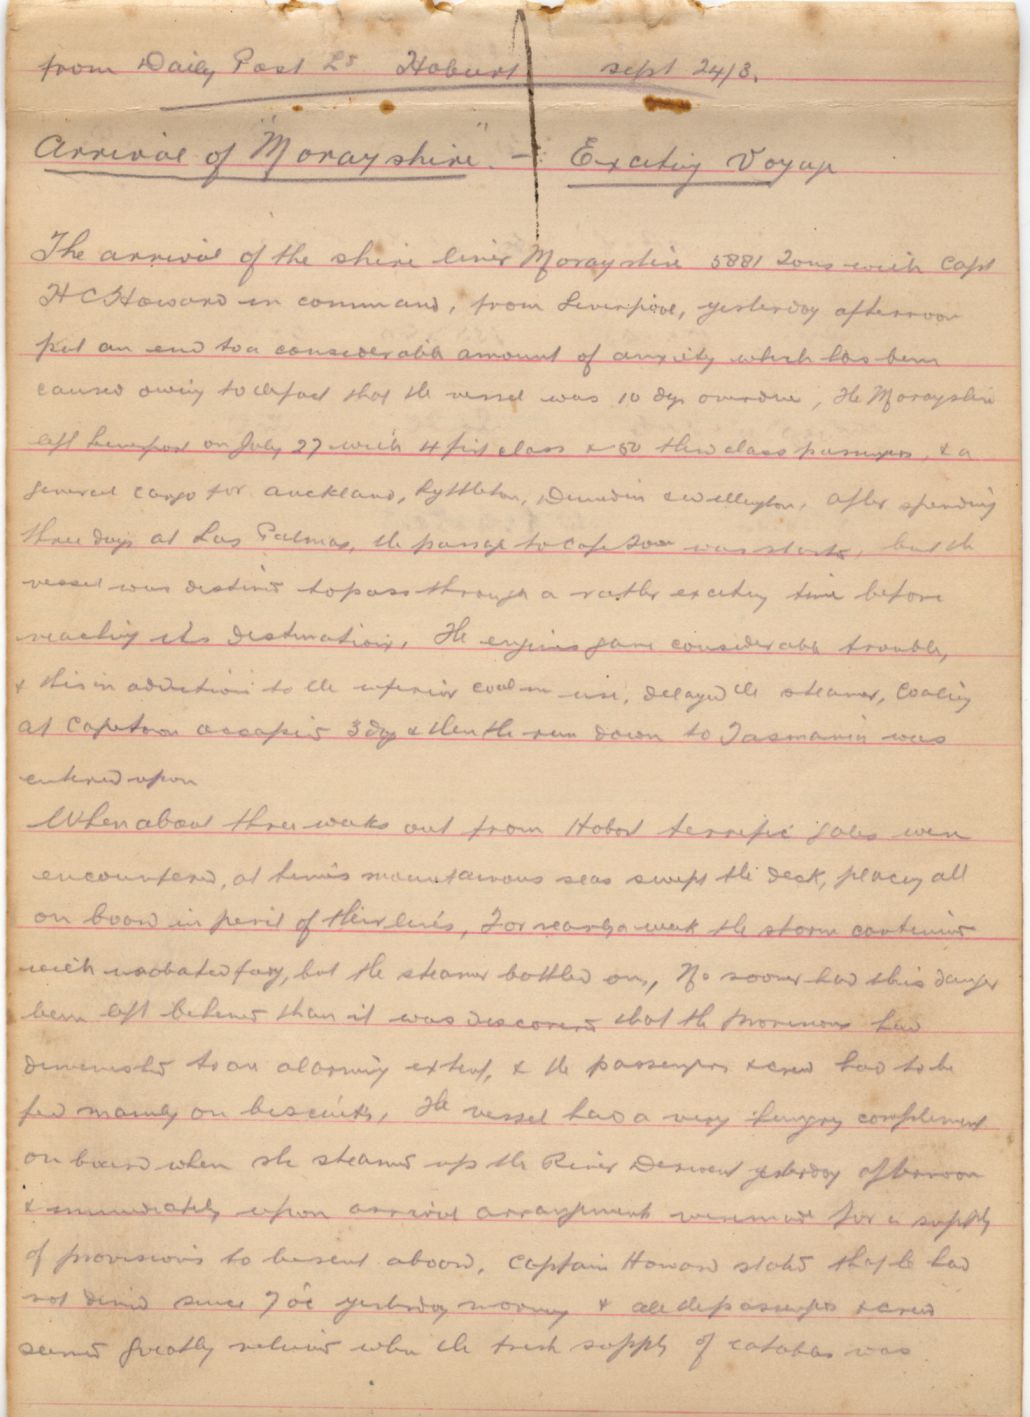 from Daily Post Ld Hobart Sept 24/3.
Arrival of "Morayshire" - Exciting Voyage
The arrival of the shire liner Morayshire 5881 Tons with Capt
H C Howard in command, from Liverpool, yesterday afternoon
put an end to a considerable amount of anxiety which has been
caused owing to the fact that the vessel was 10 dys overdue, The Morayshire
left Liverpool on July 27 with 4 first class & 50 third class passengers, & a
general cargo for Auckland, Lyttleton, Dunedin & Wellington, after spending
three days at Las Palmas, the passage to Cape Town was started, but the
vessel was destined to pass through a rather exciting time before
reaching its destination, The engines gave considerable trouble,
& this in addition to the inferior coal in use, delayed the steamer, Coaling
at Capetown occupied 3 dys & then the run down to Tasmania was
entered upon
When about three weeks out from Hobart terrific gales were
encountered, at times mountainous seas swept the deck, placing all
on board in peril of their lives, For nearly a week the storm continued
with unabated fury, but the steamer battled on, No sooner had this danger
been left behind than it was discovered that the provisions had
diminished to an alarming extent, & the passengers & crew had to be
fed mainly on biscuits, The vessel had a very hungry complement
on board when she steamed up the River Derwent yesterday afternoon
& immediately upon arrival arrangements were made for a supply
of provisions to be sent aboard, Captain Howard stated that he had
not dined since 7 oc yesterday morning & all the passengers & crew
seemed greatly relieved when the fresh supply of eatables was